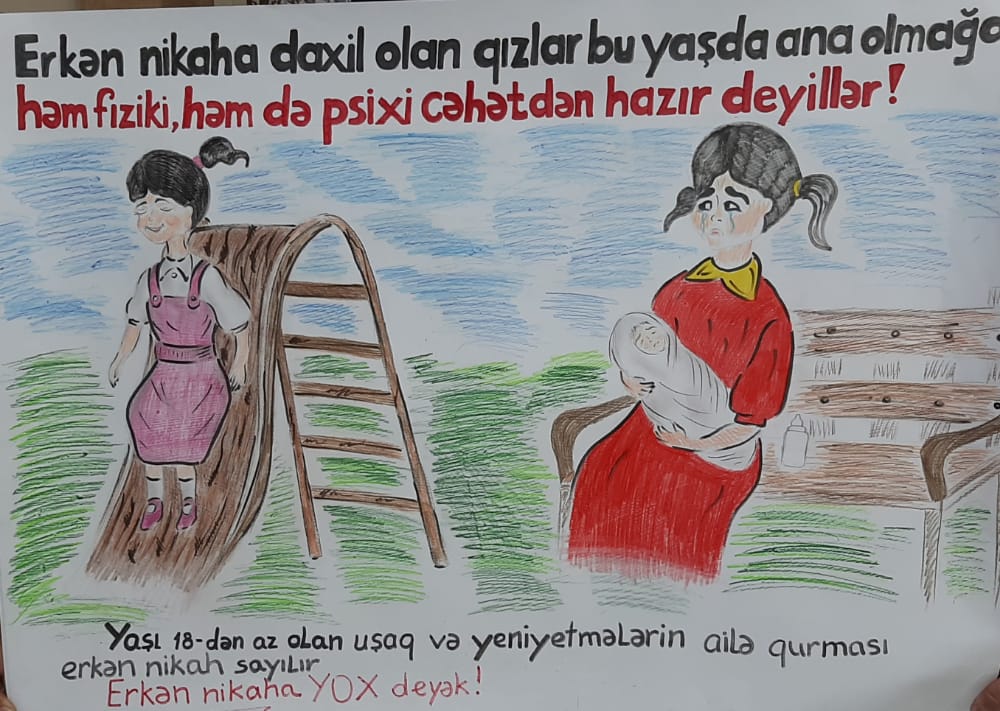 Erkən nikaha daxil olan qızlar bu yaşda ana olmağa
həm fiziki, həm də psixi cəhətdən hazır deyillər!
Yaşı 18-dən az olan uşaq və yeniyetmələrin ailə qurması
erkən nikah sayılır
Erkən nikaha YOX deyək!